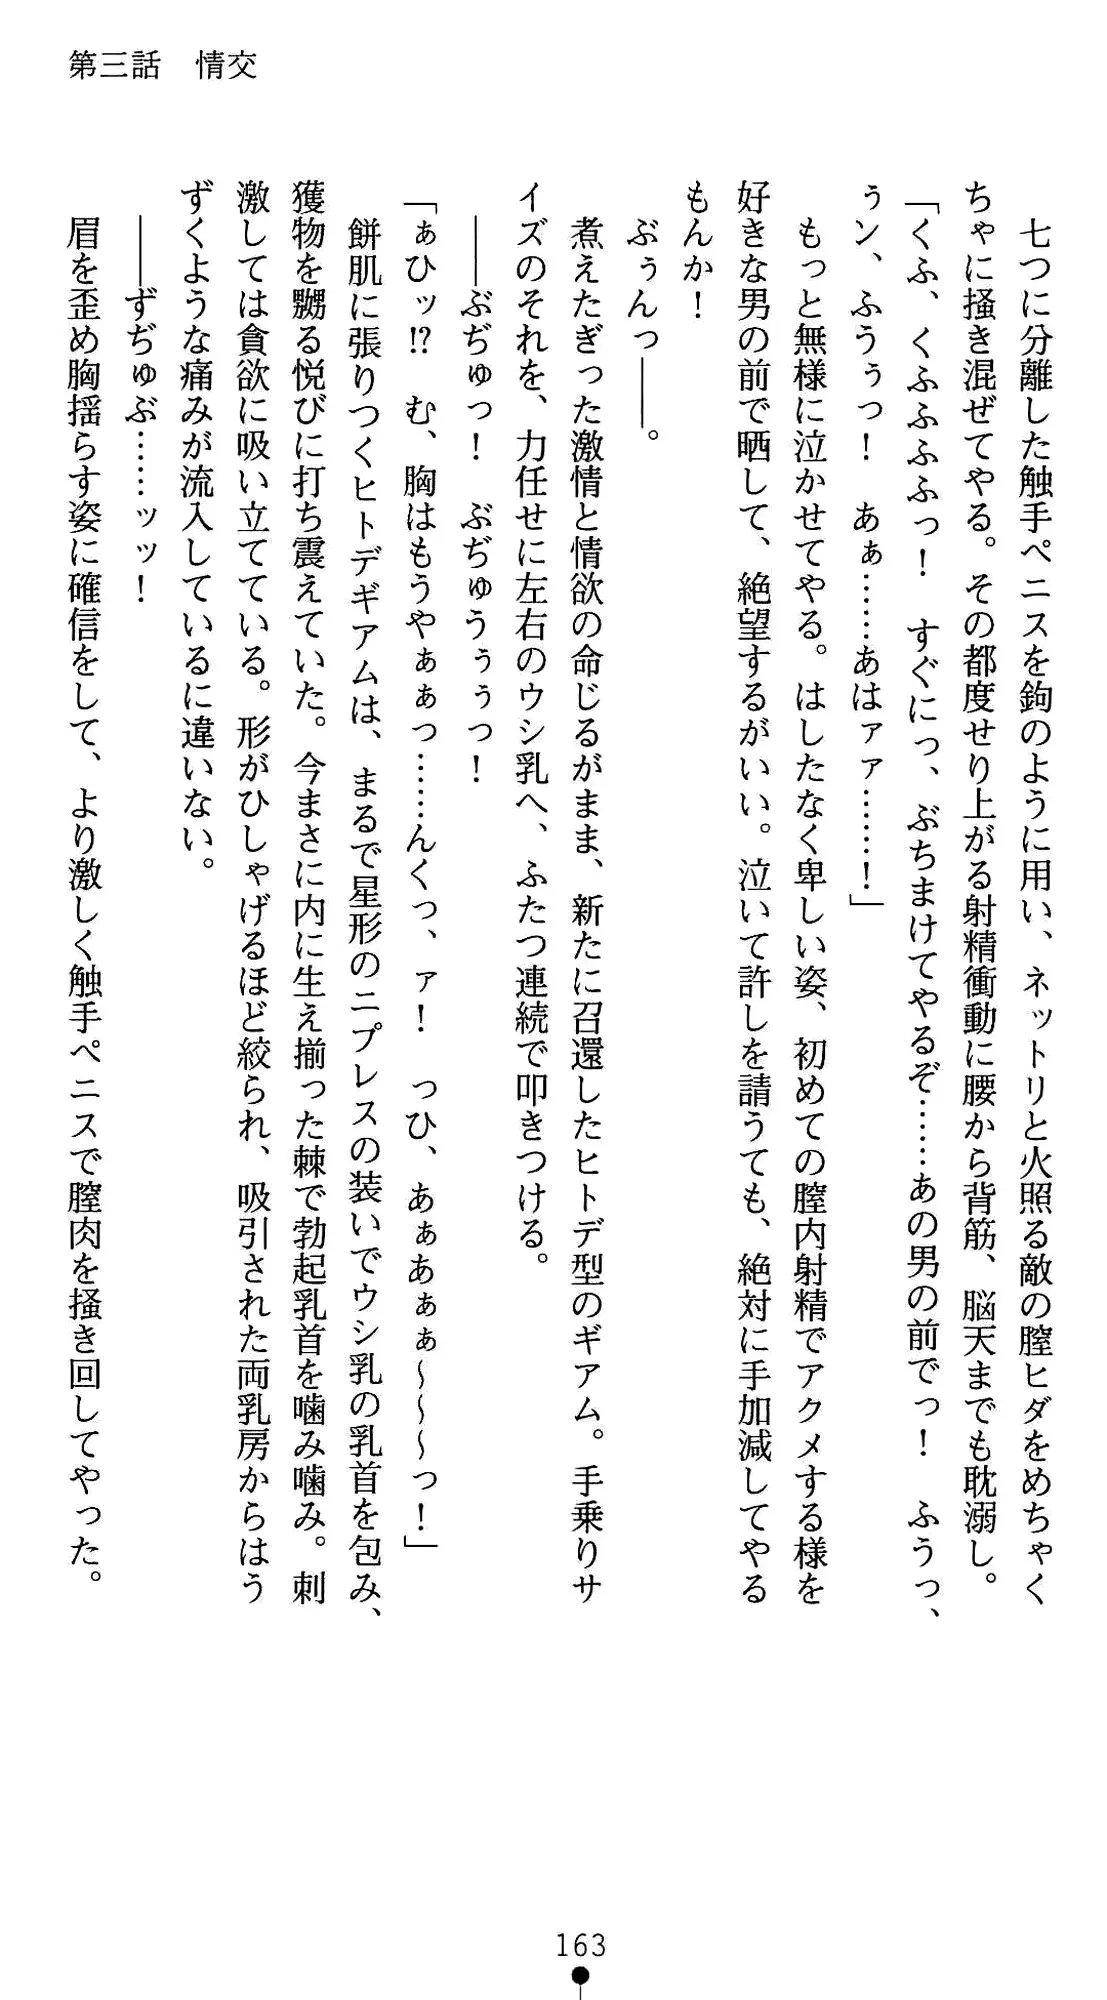 第三話　情交
　七つに分離した触手ペニスを鉤のように用い、ネットリと火照る敵の膣ヒダをめちゃく
ちゃに掻き混ぜてやる。その都度せり上がる射精衝動に腰から背筋、脳天までも耽溺し。
「くふ、くふふふふっ！　すぐにっ、ぶちまけてやるぞ……あの男の前でっ！　ふうっ、
ぅン、ふうぅっ！　あぁ……あはァァ……！」
　もっと無様に泣かせてやる。はしたなく卑しい姿、初めての膣内射精でアクメする様を
好きな男の前で晒して、絶望するがいい。泣いて許しを請うても、絶対に手加減してやる
もんか！
　ぶぅんっ――。
　煮えたぎった激情と情欲の命じるがまま、新たに召還したヒトデ型のギアム。手乗りサ
イズのそれを、力任せに左右のウシ乳へ、ふたつ連続で叩きつける。
　――ぶぢゅっ！　ぶぢゅうぅぅっ！
「ぁひッ!?　む、胸はもうやぁぁっ……んくっ、ァ！　っひ、あぁあぁぁ～～～っ！」
　餅肌に張りつくヒトデギアムは、まるで星形のニプレスの装いでウシ乳の乳首を包み、
獲物を嬲る悦びに打ち震えていた。今まさに内に生え揃った棘で勃起乳首を噛み噛み。刺
激しては貪欲に吸い立てている。形がひしゃげるほど絞られ、吸引された両乳房からはう
ずくような痛みが流入しているに違いない。
　――ずぢゅぶ……ッッ！
　眉を歪め胸揺らす姿に確信をして、より激しく触手ペニスで膣肉を掻き回してやった。
163